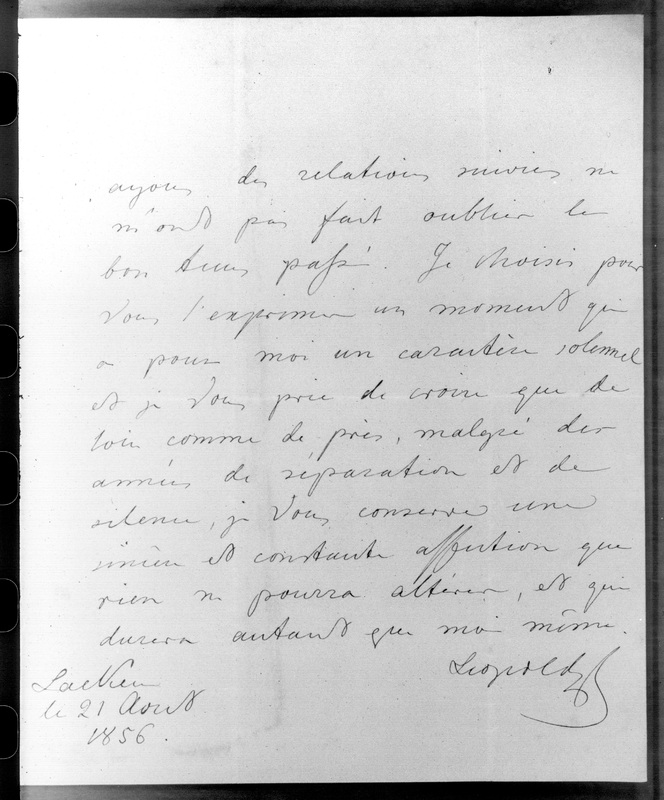 ayons des relations suivies ne
m'ont pas fait oublier le
bon tems passé. Je choisis pour
Vous l'exprimer un moment qui
a pour moi un caractère solennel
et je Vous prie de croire que de
loin comme de près, malgré des
années de séparation et de
silence, je Vous conserve une
sincère et constante affection que
rien ne pourra altérer, et qui
durera autant que moi même.
Leopold
Laeken
le 21 Aout
1856.